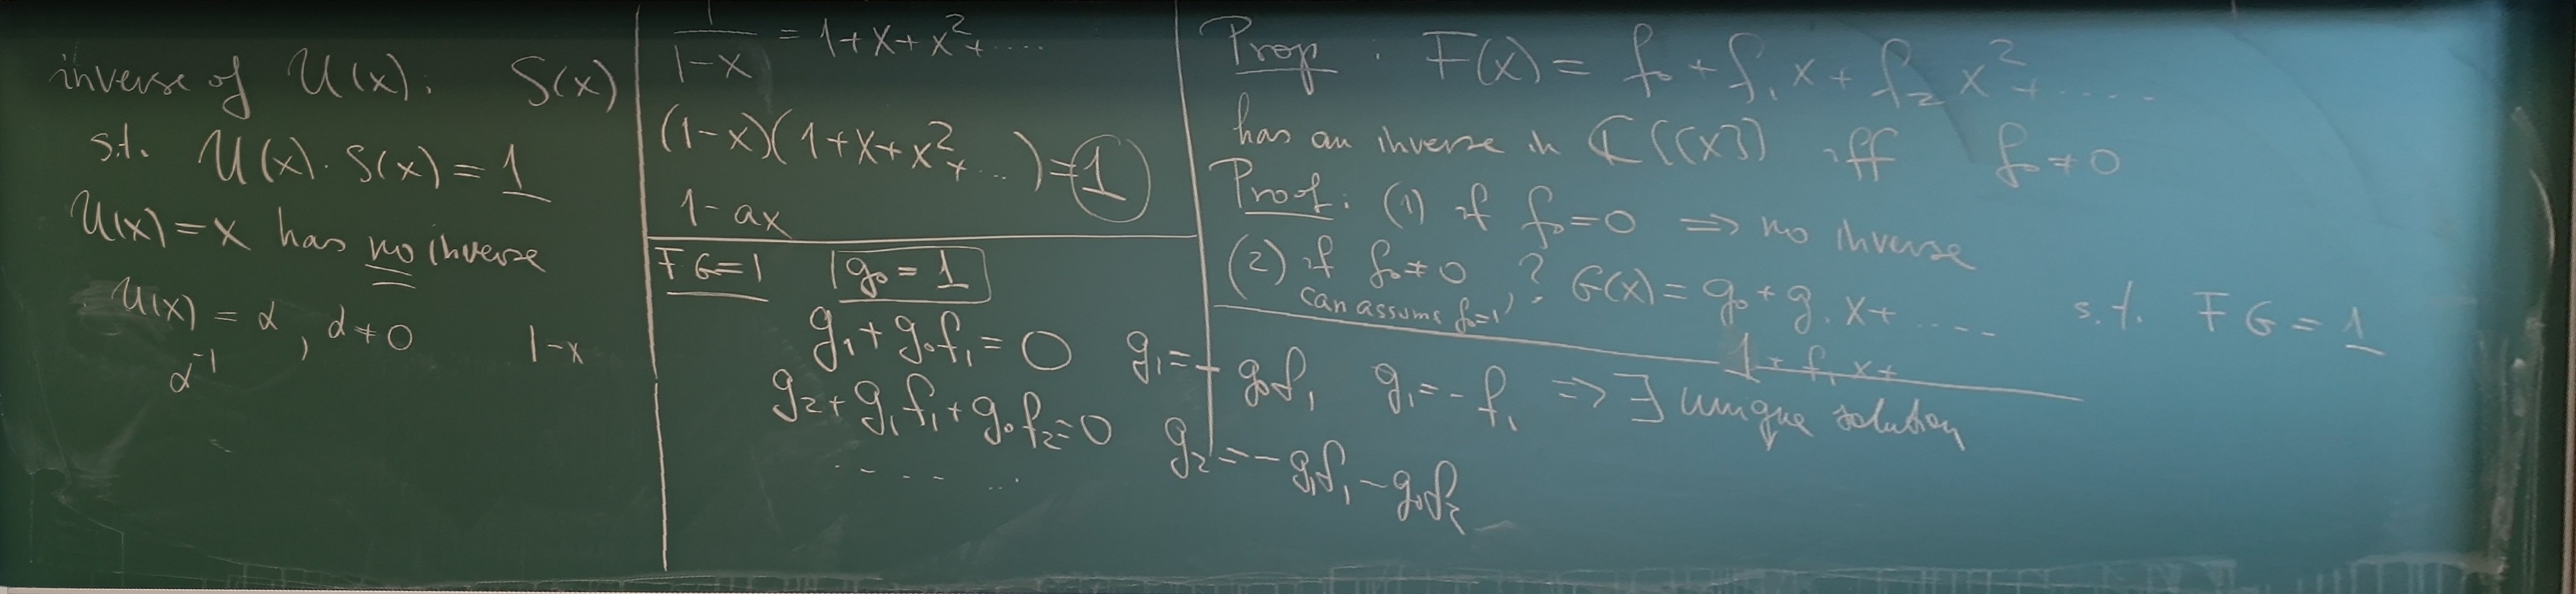 inverse of U(x): S(x)
s.t. U(x)·S(x) = 1
U(x) = x has no inverse
U(x) = α, α ≠ 0    1-x
α⁻¹
1/(1-x) = 1+x+x²+....
(1-x)(1+x+x²+...) = 1
1-ax
FG=1    g₀ = 1
g₁+g₀f₁ = 0    g₁ = -g₀f₁    g₁ = -f₁ ⇒ ∃ unique solution
g₂+g₁f₁+g₀f₂=0    g₂ = -g₁f₁-g₀f₂
.... ...
Prop: F(x) = f₀+f₁x+f₂x²+....
has an inverse in ℂ[[x]] iff f₀≠0
Proof: (1) if f₀=0 ⇒ no inverse
(2) if f₀≠0 ? G(x) = g₀+g₁x+.... s.t. FG = 1
can assume f₀=1
1+f₁x+